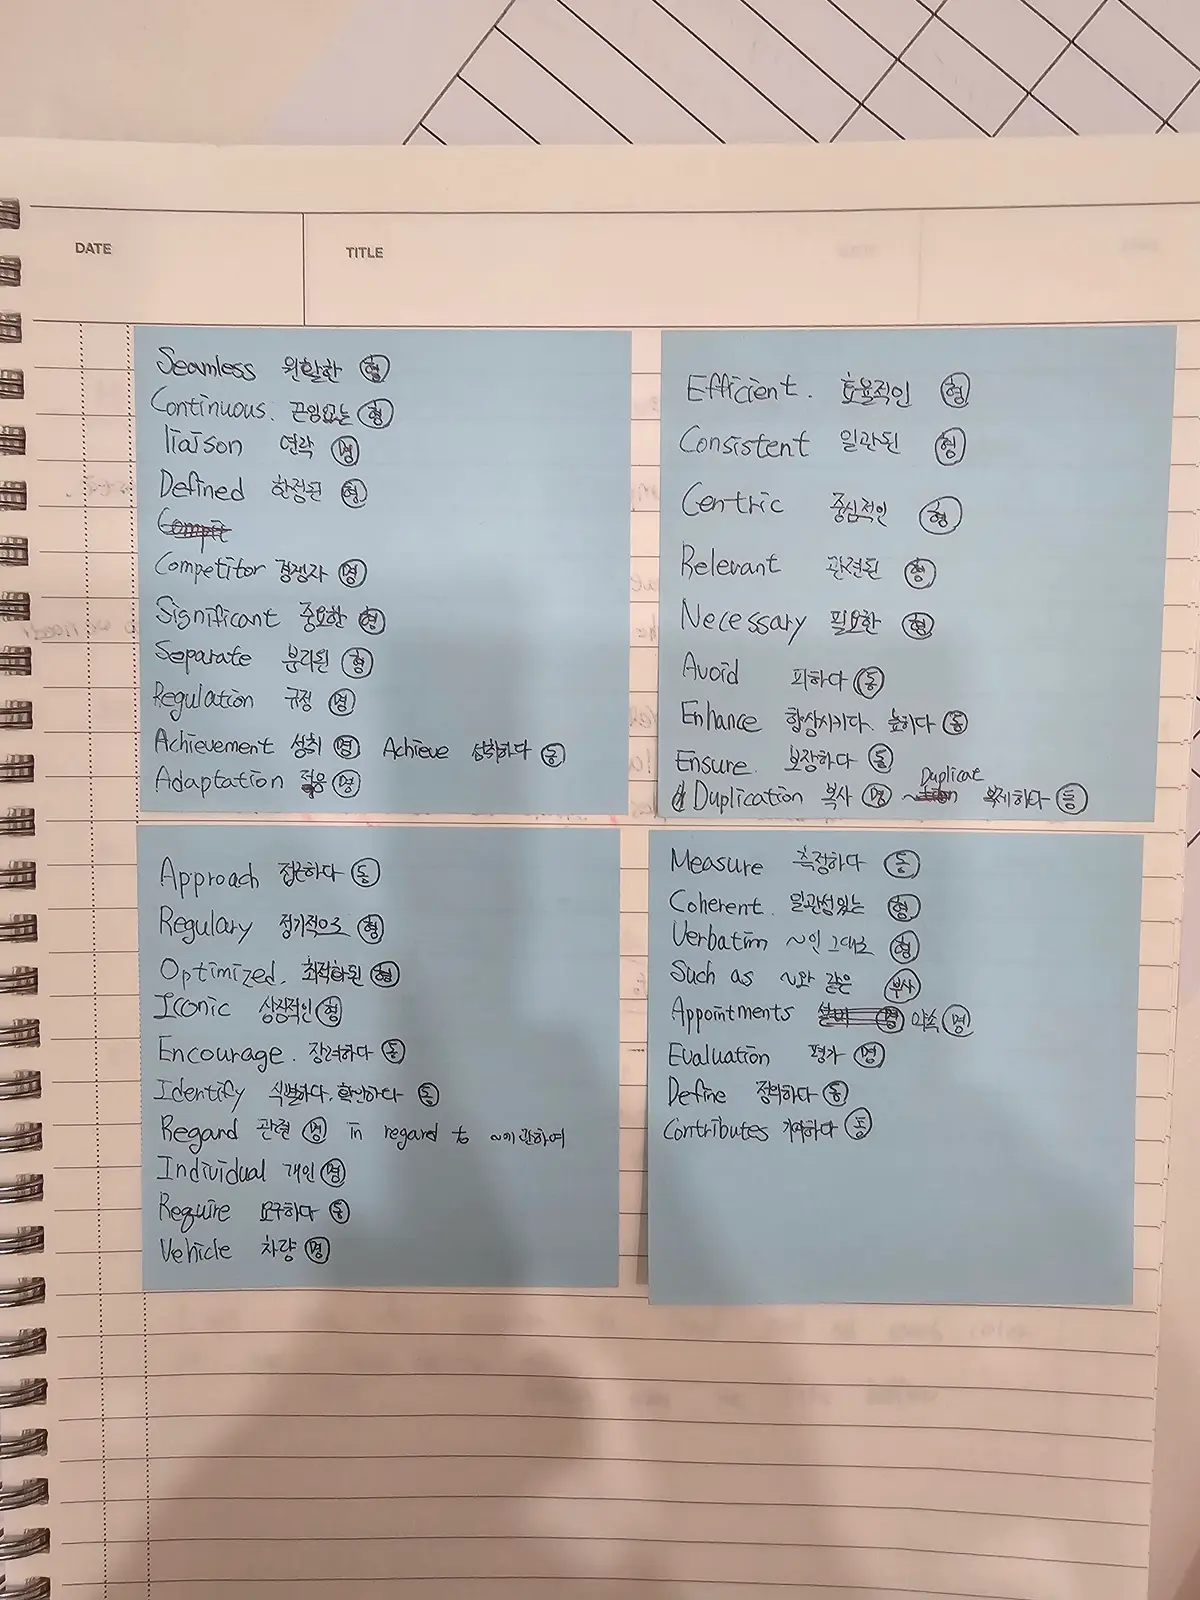 DATE
TITLE
Seamless 원활한 형
Continuous. 끈임없는 형
liaison 연락 명
Defined 한정된 형
Compit
Competitor 경쟁자 명
Significant 중요한 형
Separate 분리된 형
Regulation 규정 명
Achievement 성취 명 Achieve 성취하다 동
Adaptation 적응 명
Efficient. 효율적인 형
Consistent 일관된 형
Centric 중심적인 형
Relevant 관련된 형
Necessary 필요한 형
Avoid 피하다 동
Enhance 향상시키다. 높히다 동
Ensure. 보장하다 동
Duplicat
Duplication 복사 명 ~ 복제하다 동
Approach 접근하다 동
Regulary 정기적으로 형
Optimized. 최적화된 형
Iconic 상징적인 형
Encourage. 장려하다 동
Identify 식별하다. 확인하다 동
Regard 관련 명 in regard to ~에 관하여
Individual 개인 명
Require 요구하다 동
Vehicle 차량 명
Measure 측정하다 동
Coherent. 일관성있는 형
Verbatim ~인 그대로 형
Such as ~와 같은 부사
Appointments 명 약속 명
Evaluation 평가 명
Define 정의하다 동
Contributes 기여하다 동